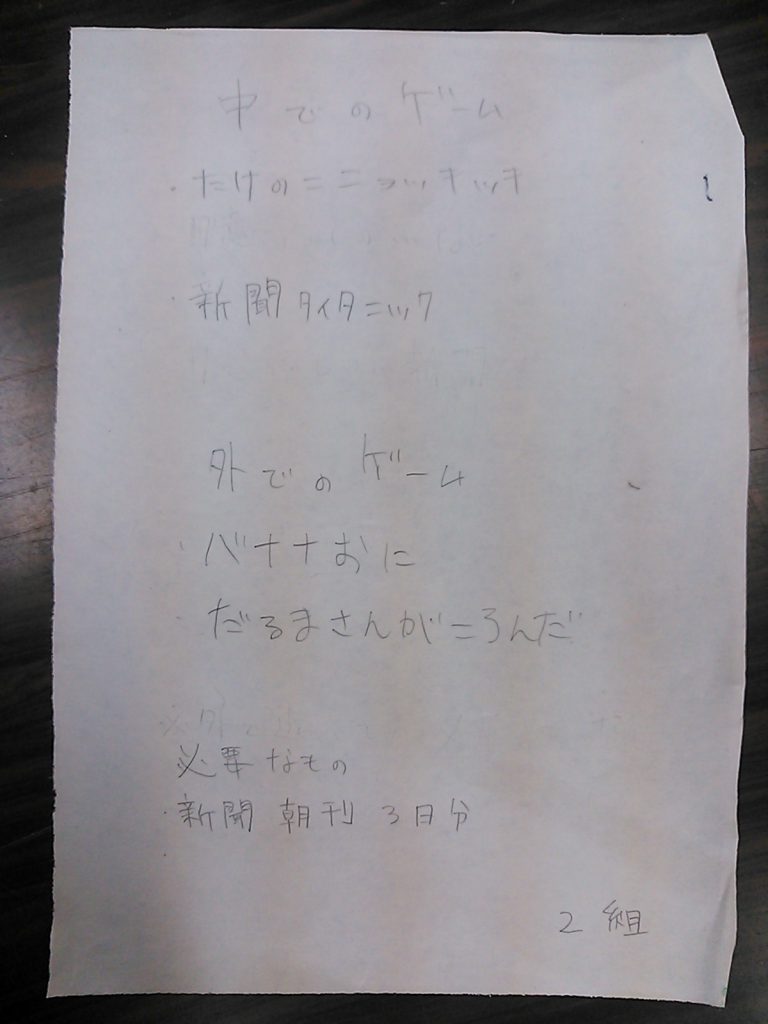 中でのゲーム
・たけのこニョッキッキ
・新聞タイタニック
外でのゲーム
・バナナおに
・だるまさんがころんだ
必要なもの
・新聞 朝刊 3日分
2組